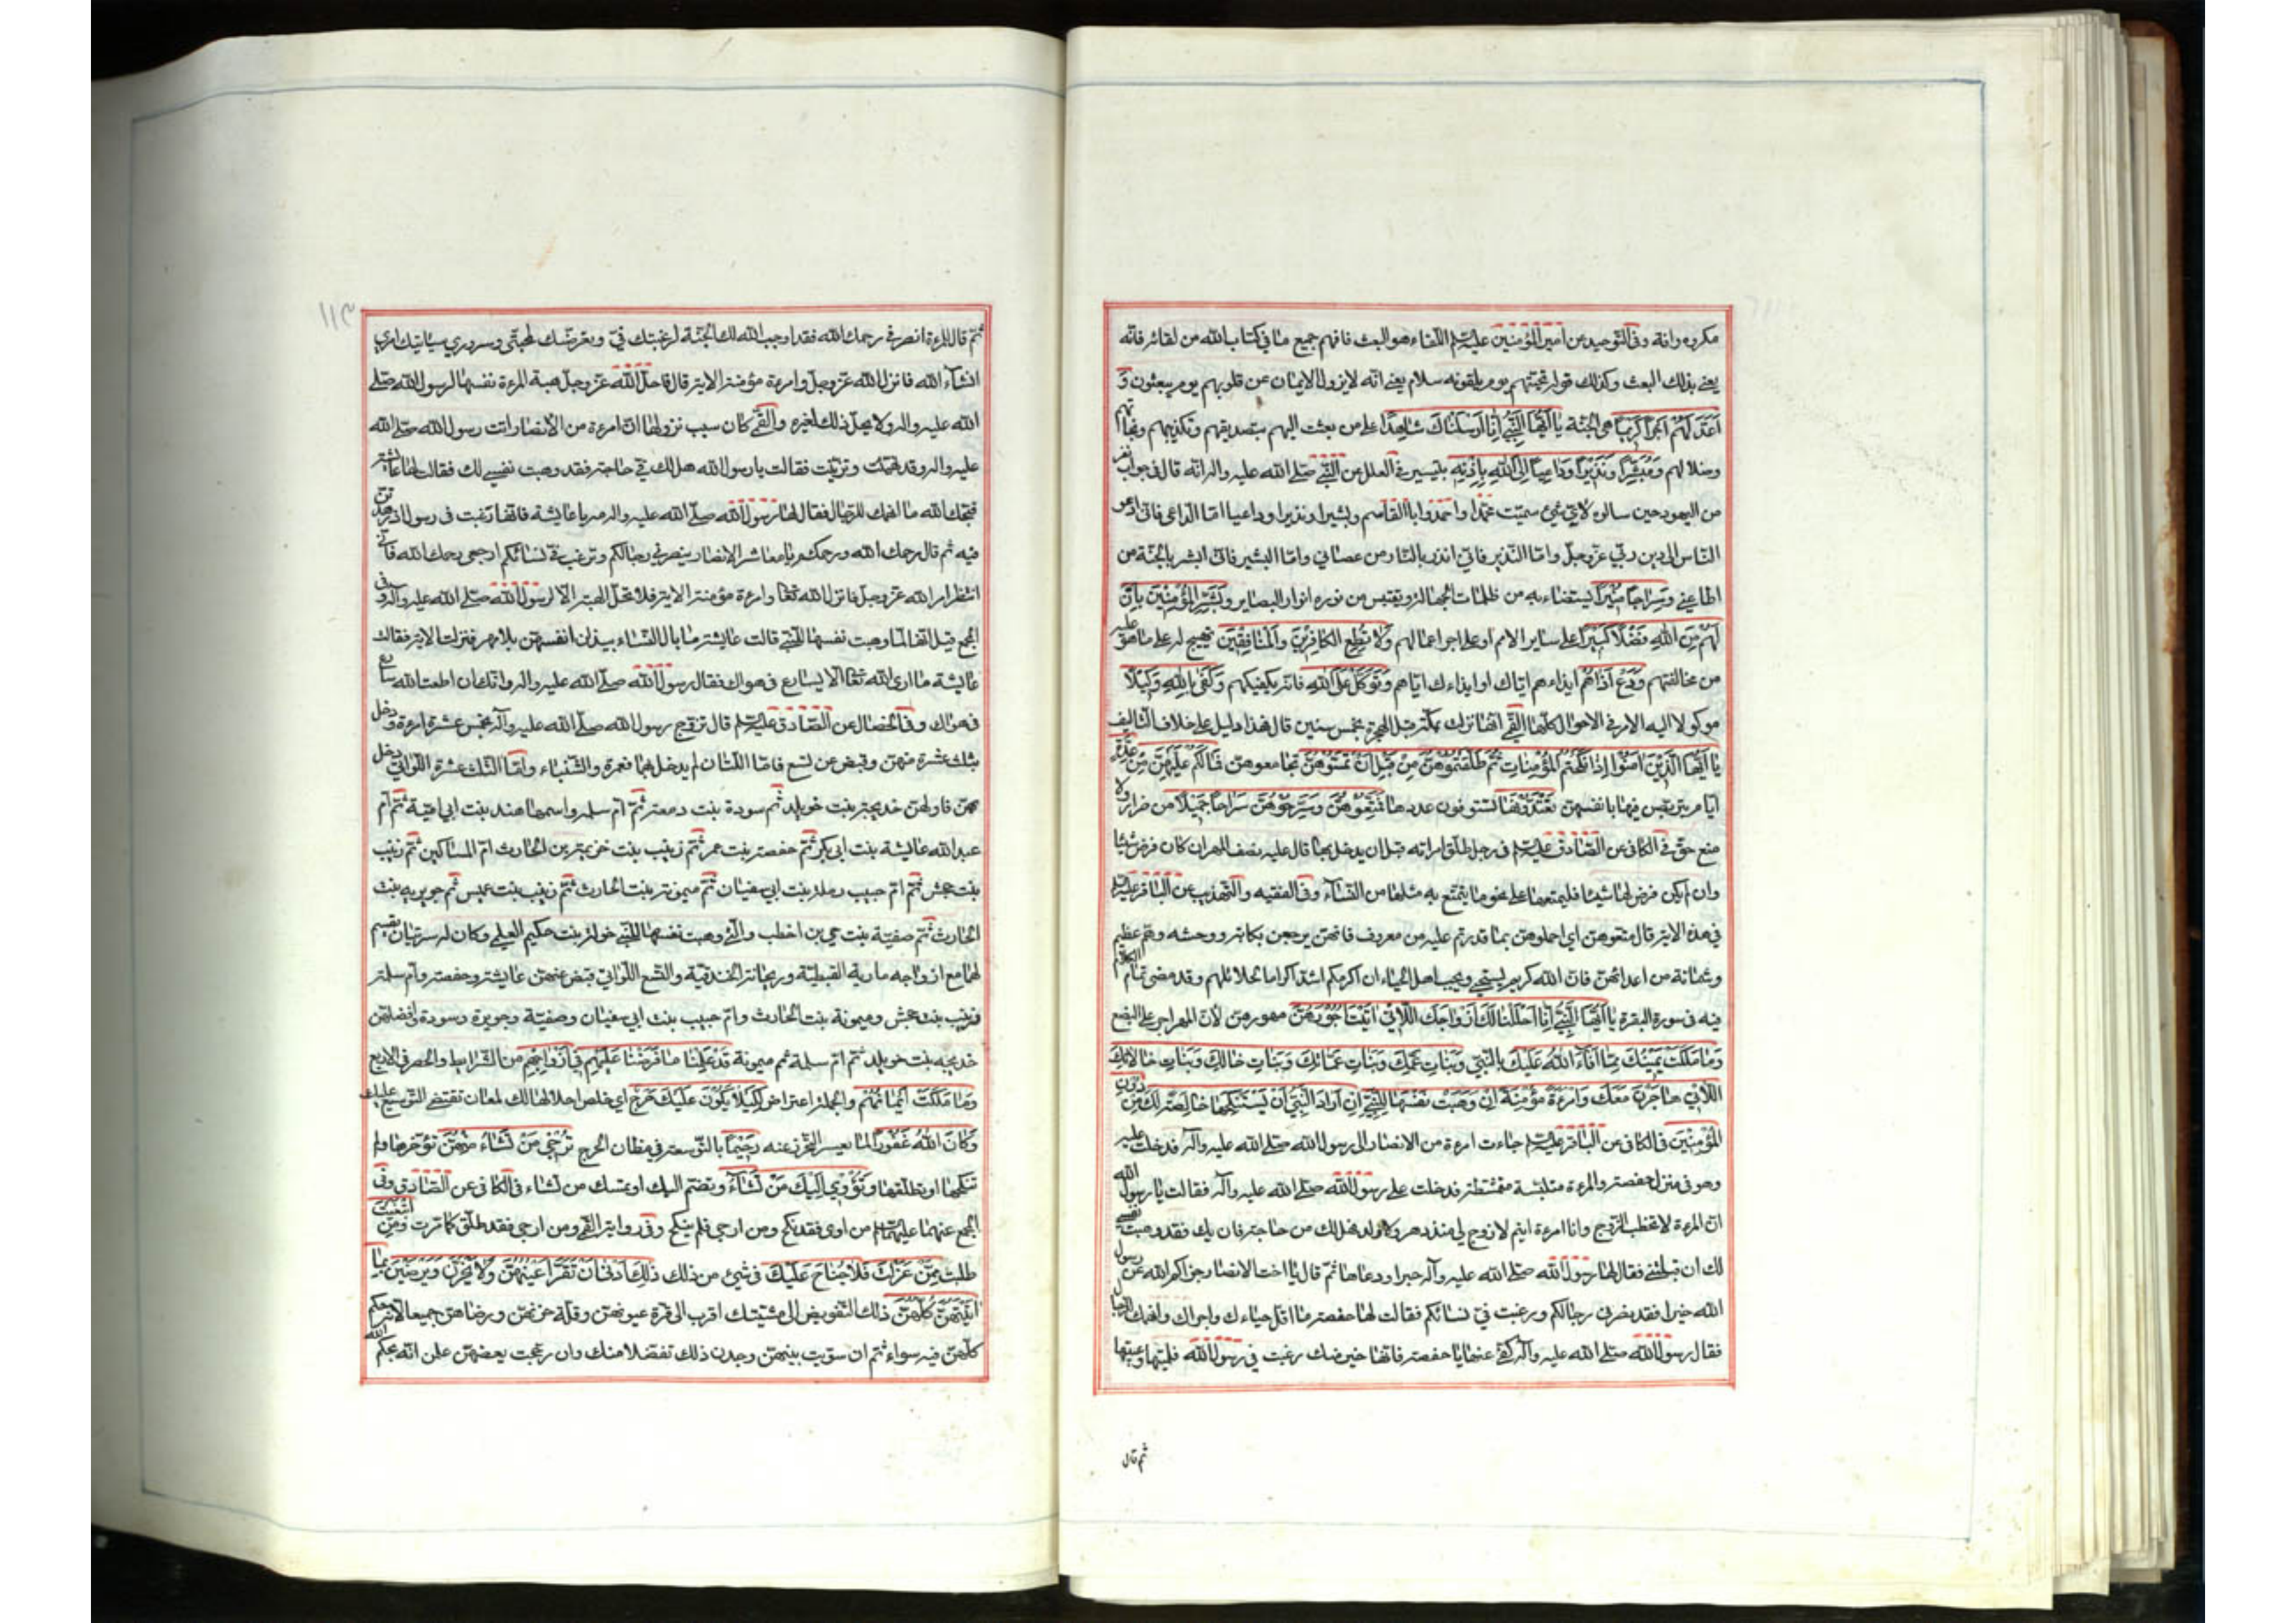 مكروه وافة وفي التوحيد عن امير المؤمنين عليه السلام اللقاء هو البعث فافهم جميع ما في كتاب الله من لقائه فانه
يعني بذلك البعث وكذلك قوله تحيتهم يوم يلقونه سلام يعني انه لا يزول الايمان عن قلوبهم يوم يبعثون وَ
اَعَدَّ لَهُمْ اَجْراً كَرِيماً هي الجنة يا اَيُّهَا النَّبِيُّ اِنَّا اَرْسَلْنَاكَ شَاهِداً على من بعثت اليهم بتصديقهم وتكذيبهم ونجاتهم
وضلالهم وَمُبَشِّراً وَنَذِيراً وَدَاعِياً اِلَى اللهِ بِاِذْنِهِ بتيسيره في العلل عن النبي صلى الله عليه واله انه قال في جواب نفر
من اليهود حين سالوه لاي شئ سميت محمدا واحمد وابا القاسم وبشيرا ونذيرا وداعيا اما الداعي فاني ادعو
الناس الى دين ربي عز وجل واما النذير فاني انذر بالنار من عصاني واما البشير فاني ابشر بالجنة من
اطاعني وَسِرَاجاً مُنِيراً يستضاء به من ظلمات الجهالة ويقتبس من نوره انوار البصاير وَبَشِّرِ الْمُؤْمِنِينَ بِاَنَّ
لَهُمْ مِنَ اللهِ فَضْلاً كَبِيراً على ساير الامم او على اجر اعمالهم وَلا تُطِعِ الْكَافِرِينَ وَالْمُنَافِقِينَ تهييج له على ما هو عليه
من مخالفتهم وَدَعْ اَذَاهُمْ ايذاءهم اياك او ايذاءك اياهم وَتَوَكَّلْ عَلَى اللهِ فانه يكفيكهم وَكَفَى بِاللهِ وَكِيلاً
موكولا اليه الامر في الاحوال كلها القمي انها نزلت بمكة قبل الهجرة بخمس سنين قال فهذا دليل على خلاف التاليف
يَا اَيُّهَا الَّذِينَ آمَنُوا اِذَا نَكَحْتُمُ الْمُؤْمِنَاتِ ثُمَّ طَلَّقْتُمُوهُنَّ مِنْ قَبْلِ اَنْ تَمَسُّوهُنَّ تجامعوهن فَمَا لَكُمْ عَلَيْهِنَّ مِنْ عِدَّةٍ
ايام يتربصن فيها بانفسهن تَعْتَدُّونَهَا تستوفون عددها فَمَتِّعُوهُنَّ وَسَرِّحُوهُنَّ سَرَاحاً جَمِيلاً من غير ضرار ولا
منع حق في الكافي عن الصادق عليه السلام في رجل طلق امراته قبل ان يدخل بها قال عليه نصف المهر ان كان فرض شيئا
وان لم يكن فرض لها شيئا فليمتعها على نحو ما يتمتع به مثلها من النساء وفي الفقيه والتهذيب عن الباقر عليه السلام
في هذه الاية قال متعوهن اي احملوهن بما قدرتم عليه من معروف فانهن يرجعن بكابة ووحشة وهم عظيم
وشماتة من اعدائهن فان الله كريم يستحيي ويحب اهل الحياء ان اكرمكم اشدكم اكراما لحلائلهم وقد مضى تمام الكلام
فيه في سورة البقرة يَا اَيُّهَا النَّبِيُّ اِنَّا اَحْلَلْنَا لَكَ اَزْوَاجَكَ اللاَّتِي آتَيْتَ اُجُورَهُنَّ مهورهن لان المهر اجر على البضع
وَمَا مَلَكَتْ يَمِينُكَ مِمَّا اَفَاءَ اللهُ عَلَيْكَ بالسبي وَبَنَاتِ عَمِّكَ وَبَنَاتِ عَمَّاتِكَ وَبَنَاتِ خَالِكَ وَبَنَاتِ خَالاتِكَ
اللاَّتِي هَاجَرْنَ مَعَكَ وَامْرَءَةً مُؤْمِنَةً اِنْ وَهَبَتْ نَفْسَهَا لِلنَّبِيِّ اِنْ اَرَادَ النَّبِيُّ اَنْ يَسْتَنْكِحَهَا خَالِصَةً لَكَ مِنْ دُونِ
الْمُؤْمِنِينَ في الكافي عن الباقر عليه السلام جاءت امرءة من الانصار الى رسول الله صلى الله عليه وآله فدخلت عليه
وهو في منزل حفصة والمرءة متلبسة متمشطة فدخلت على رسول الله صلى الله عليه وآله فقالت يا رسول الله
ان المرءة لا تخطب الزوج وانا امرءة ايم لا زوج لي منذ دهر ولا ولد فهل لك من حاجة فان يك فقد وهبت نفسي
لك ان قبلتني فقال لها رسول الله صلى الله عليه وآله خيرا ودعا لها ثم قال يا اخت الانصار جزاكم الله عن رسول
الله خيرا فقد نصرني رجالكم ورغبت في نسائكم فقالت لها حفصة ما اقل حياءك واجراك وانهمك للرجال
فقال رسول الله صلى الله عليه وآله كفي عنها يا حفصة فانها خير منك رغبت في رسول الله فلمتها وعبتها
ثم قال
١١٣
ثم قال للمرءة انصرفي رحمك الله فقد اوجب الله لك الجنة لرغبتك في وتعرضك لمحبتي وسروري سياتيك امري
انشاء الله فانزل الله عز وجل وامرءة مؤمنة الاية قال فاحل الله عز وجل هبة المرءة نفسها لرسول الله صلى
الله عليه واله ولا يحل ذلك لغيره والقمي كان سبب نزولها ان امرءة من الانصار اتت رسول الله صلى الله
عليه واله وقد تهيات وتزينت فقالت يا رسول الله هل لك في حاجة فقد وهبت نفسي لك فقالت لها عائشة
قبحك الله ما انهمك للرجال فقال لها رسول الله صلى الله عليه واله مه يا عايشة فانها رغبت في رسول الله اذ زهدتن
فيه ثم قال رحمك الله ورحمكم يا معاشر الانصار ينصرني رجالكم وترغب في نسائكم ارجعي رحمك الله فاني
انتظر امر الله عز وجل فانزل الله تعالى وامرءة مؤمنة الاية فلا تحل الهبة الا لرسول الله صلى الله عليه وآله وفي
المجمع قيل انها لما وهبت نفسها للنبي قالت عايشة ما بال النساء يبذلن انفسهن بلا مهر فنزلت الاية فقالت
عايشة ما ارى الله تعالى الا يسارع في هواك فقال رسول الله صلى الله عليه واله وانك ان اطعت الله سارع
في هواك وفي الخصال عن الصادق عليه السلام قال تزوج رسول الله صلى الله عليه وآله بخمس عشرة امرءة ودخل
بثلث عشرة منهن وقبض عن تسع فاما اللتان لم يدخل بهما فعمرة والشنباء واما الثلث عشرة اللواتي دخل
بهن فاولهن خديجة بنت خويلد ثم سودة بنت زمعة ثم ام سلمة واسمها هند بنت ابي امية ثم ام
عبد الله عايشة بنت ابي بكر ثم حفصة بنت عمر ثم زينب بنت خزيمة بن الحارث ام المساكين ثم زينب
بنت جحش ثم ام حبيب رملة بنت ابي سفيان ثم ميمونة بنت الحارث ثم زينب بنت عميس ثم جويرية بنت
الحارث ثم صفية بنت حي بن اخطب والتي وهبت نفسها للنبي خولة بنت حكيم السلمي وكان له سريتان يقسم
لهما مع ازواجه مارية القبطية وريحانة الخندقية والتسع اللواتي قبض عنهن عايشة وحفصة وام سلمة
وزينب بنت جحش وميمونة بنت الحارث وام حبيب بنت ابي سفيان وصفية وجويرة وسودة وافضلهن
خديجه بنت خويلد ثم ام سلمة ثم ميمونة قَدْ عَلِمْنَا مَا فَرَضْنَا عَلَيْهِمْ فِي اَزْوَاجِهِمْ من الشرايط والحصر في الاربع
وَمَا مَلَكَتْ اَيْمَانُهُمْ والجملة اعتراض لِكَيْلا يَكُونَ عَلَيْكَ حَرَجٌ اي خلص احلالها لك لمعان تقتضي التوسيع عليك
وَكَانَ اللهُ غَفُوراً لما يعسر التحرز عنه رَحِيماً بالتوسعة في مظان الحرج تُرْجِي مَنْ تَشَاءُ مِنْهُنَّ تؤخرها ولم
تنكحها او تطلقها وَتُؤْوِي اِلَيْكَ مَنْ تَشَاءُ وتضم اليك او تمسك من تشاء في الكافي عن الصادق وفي
المجمع عنهما عليهما السلام من اوى فقد نكح ومن ارجى فلم ينكح وفي رواية القمي ومن ارجى فقد طلق كما مرت وَمَنِ ابْتَغَيْتَ
طلبت مِمَّنْ عَزَلْتَ فَلا جُنَاحَ عَلَيْكَ في شئ من ذلك ذَلِكَ اَدْنَى اَنْ تَقَرَّ اَعْيُنُهُنَّ وَلا يَحْزَنَّ وَيَرْضَيْنَ بِمَا
آتَيْتَهُنَّ كُلُّهُنَّ ذلك التفويض الى مشيتك اقرب الى قرة عيونهن وقلة حزنهن ورضاهن جميعا لانه حكم
كلهن فيه سواء ثم ان سويت بينهن وجدن ذلك تفضلا منك وان رجحت بعضهن علمن انه بحكم الله